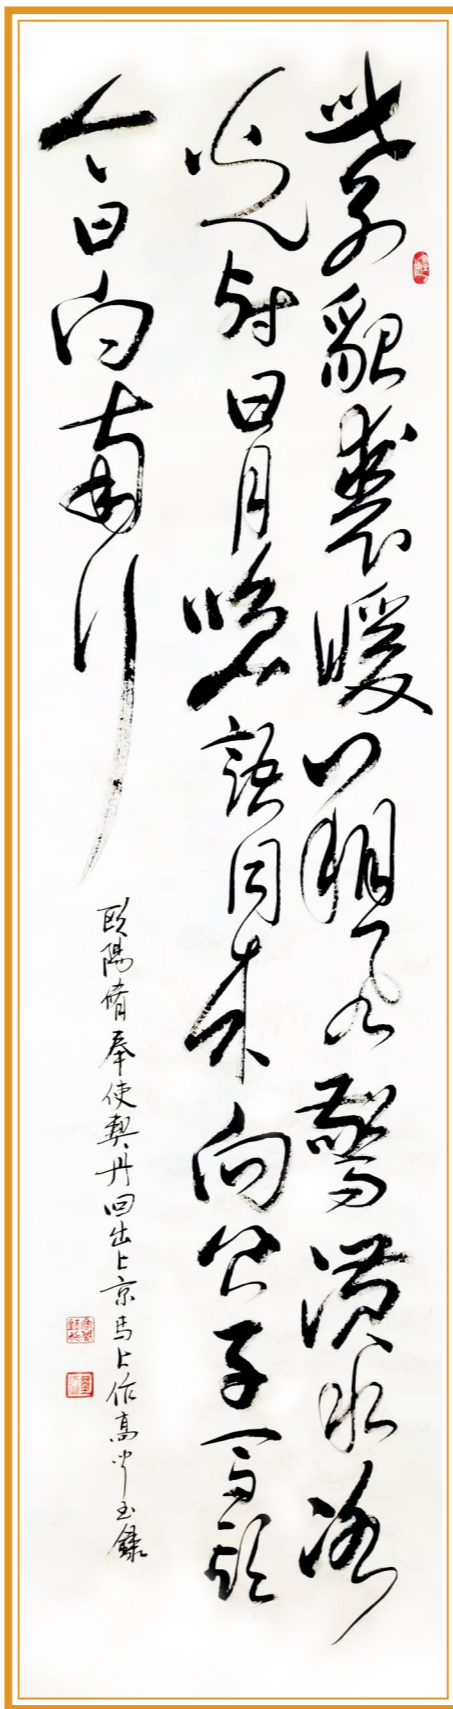 紫貂裘暖朔風驚潢水冰
光射日月咲語同来向公子馬頭
今日向南行
歐陽脩奉使契丹回出上京馬上作高玉錄